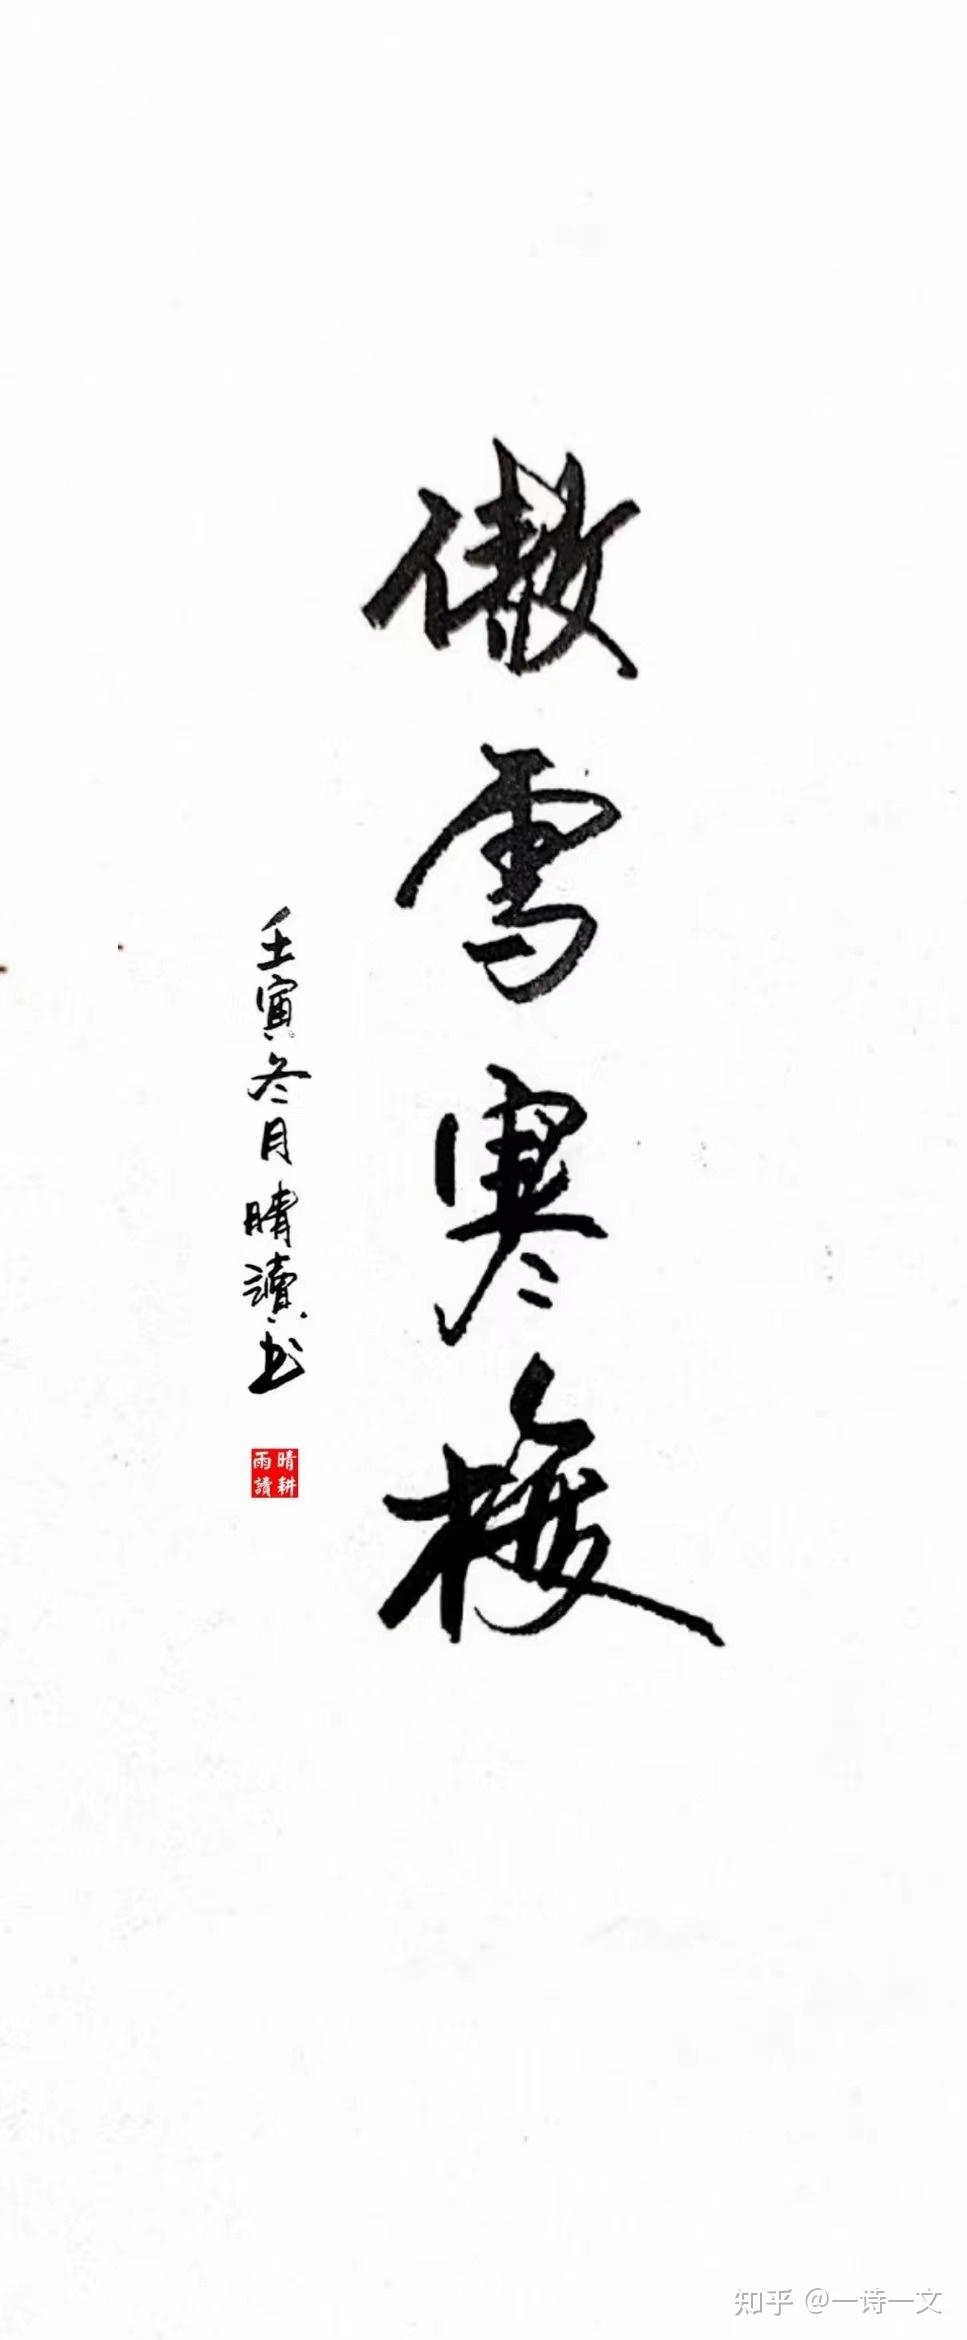 傲雪寒梅
壬寅冬月晴讀书
晴耕
雨讀
知乎 @一诗一文